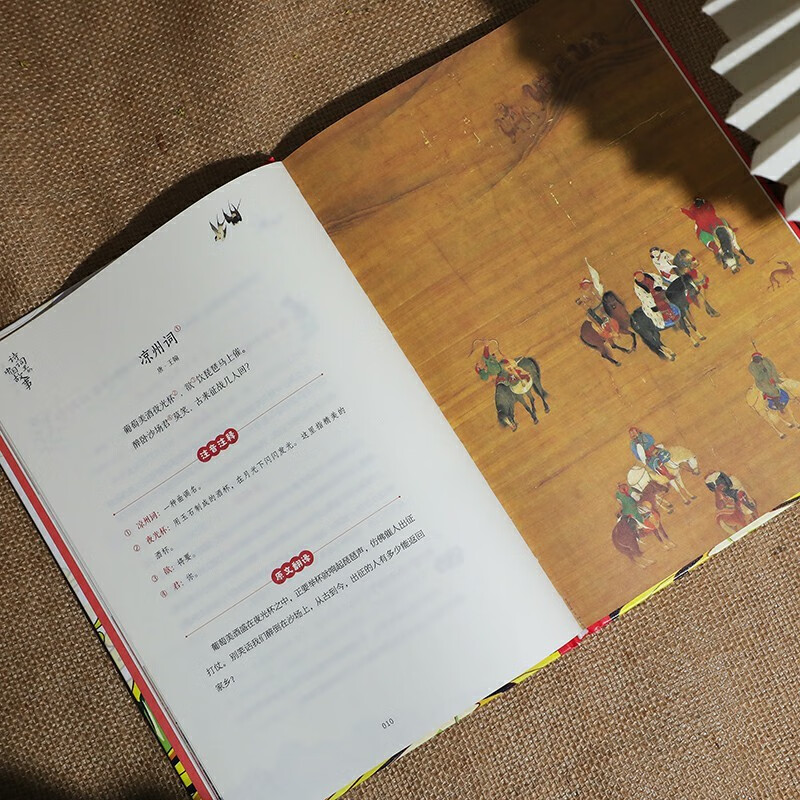 凉州词①
唐·王翰
葡萄美酒夜光杯②,欲③饮琵琶马上催。
醉卧沙场君④莫笑,古来征战几人回?
注音注释
① 凉州词:一种曲调名。
② 夜光杯:用玉石制成的酒杯,在月光下闪闪发光。这里指精美的
酒杯。
③ 欲:将要。
④ 君:你。
原文翻译
葡萄美酒盛在夜光杯之中,正要举杯就响起琵琶声,仿佛催人出征
打仗。别笑话我们醉倒在沙场上,从古到今,出征的人有多少能返回
家乡?
010